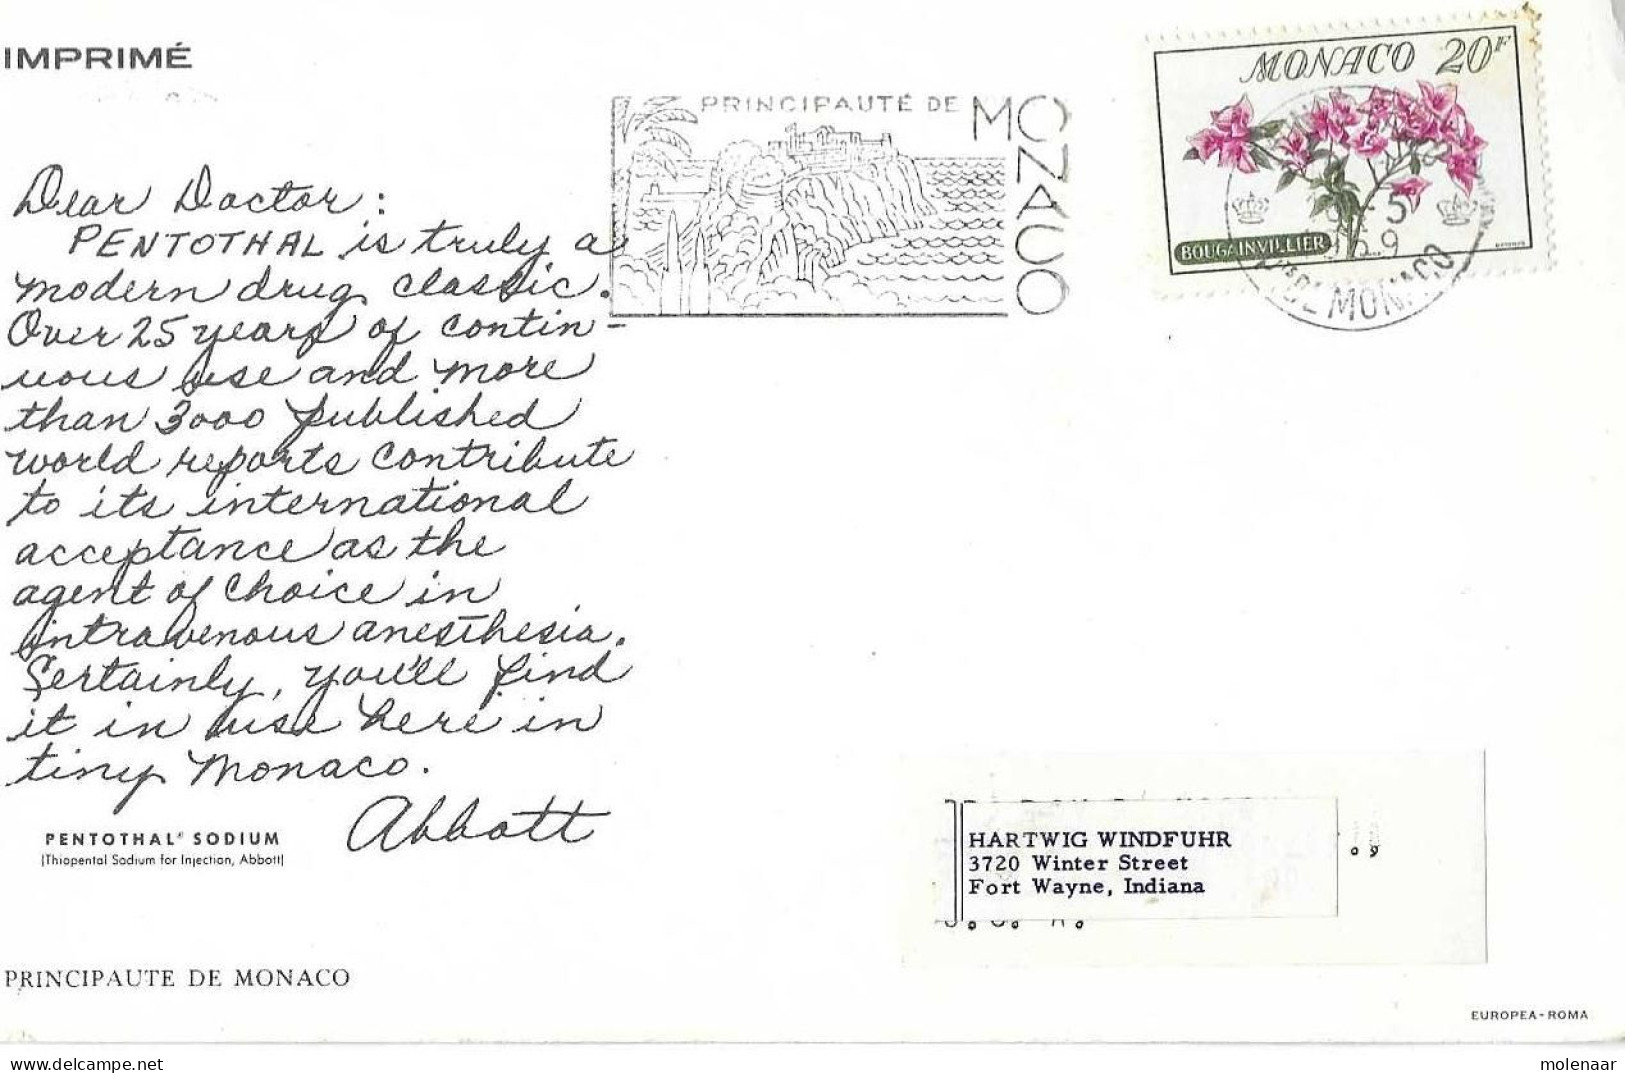 IMPRIMÉ
PRINCIPAUTÉ DE MONACO
MONACO 20F
BOUGAINVILLIER
5
MONACO
Dear Doctor:
PENTOTHAL is truly a
modern drug classic.
Over 25 years of contin-
uous use and more
than 3000 published
world reports contribute
to its international
acceptance as the
agent of choice in
intravenous anesthesia.
Certainly, you'll find
it in use here in
tiny Monaco.
Abbott
PENTOTHAL® SODIUM
(Thiopental Sodium for Injection, Abbott)
HARTWIG WINDFUHR
3720 Winter Street
Fort Wayne, Indiana
PRINCIPAUTE DE MONACO
EUROPEA-ROMA
delcampe.net
molenaar